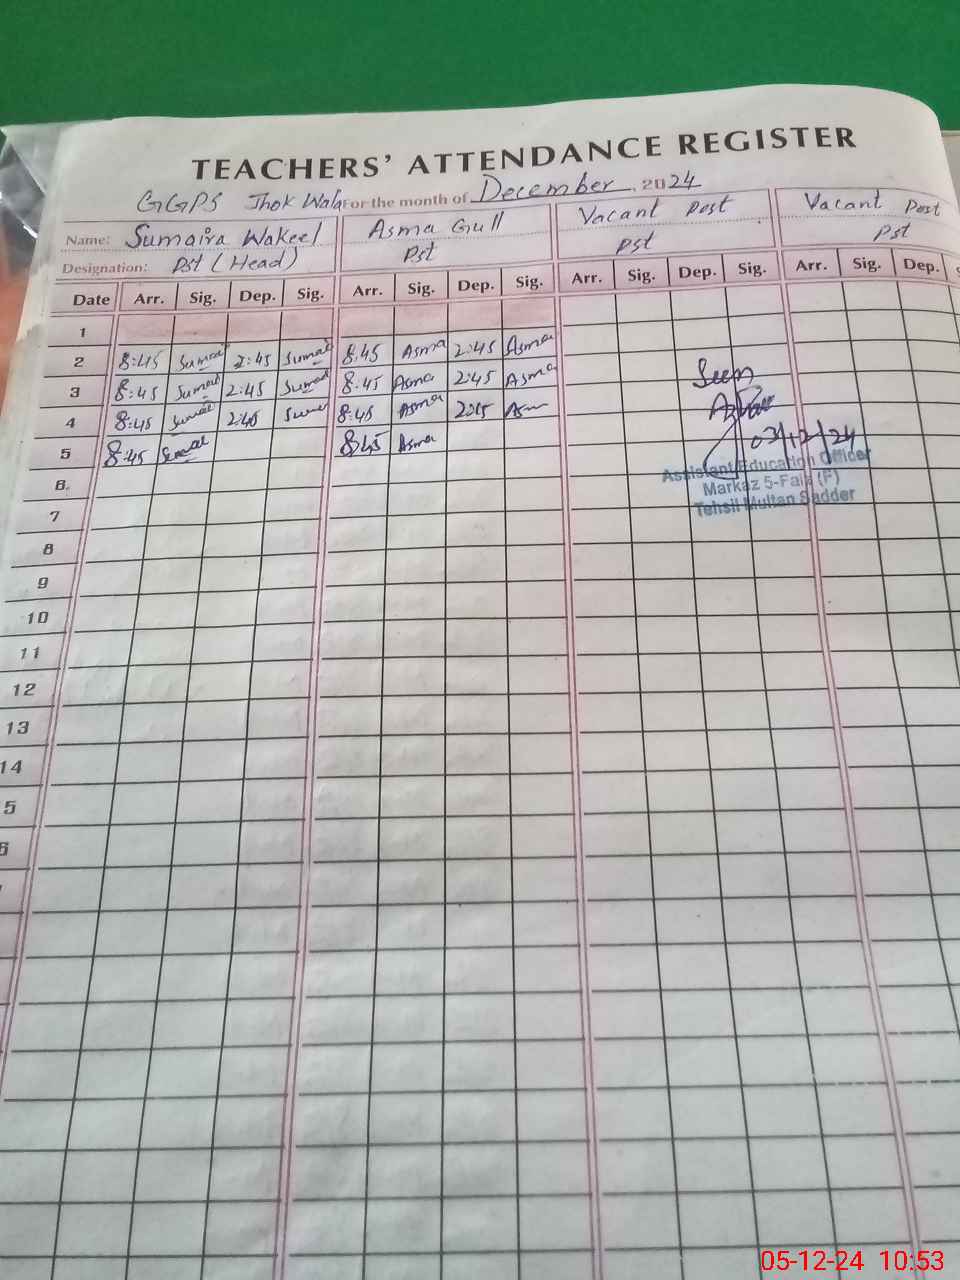 TEACHERS' ATTENDANCE REGISTER
GGPS Jhok Wala For the month of December 2024
Name: Sumaira Wakeel Asma Gull Vacant Post Vacant Post
Designation: Pst (Head) Pst Pst Pst
Date Arr. Sig. Dep. Sig. Arr. Sig. Dep. Sig. Arr. Sig. Dep. Sig. Arr. Sig. Dep.
1
2 8:45 Sumai 2:45 Sumai 8:45 Asma 2:45 Asma
3 8:45 Sumai 2:45 Sumai 8:45 Asma 2:45 Asma
4 8:45 Sumai 2:45 8:45 Asma
5 8:45 Sumai 8:45 Asma
Seen
03/12/24
Assistant Education Officer
Markaz 5-Faiz (F)
Tehsil Multan Sadder
6
7
8
9
10
11
12
13
14
5
6
05-12-24 10:53